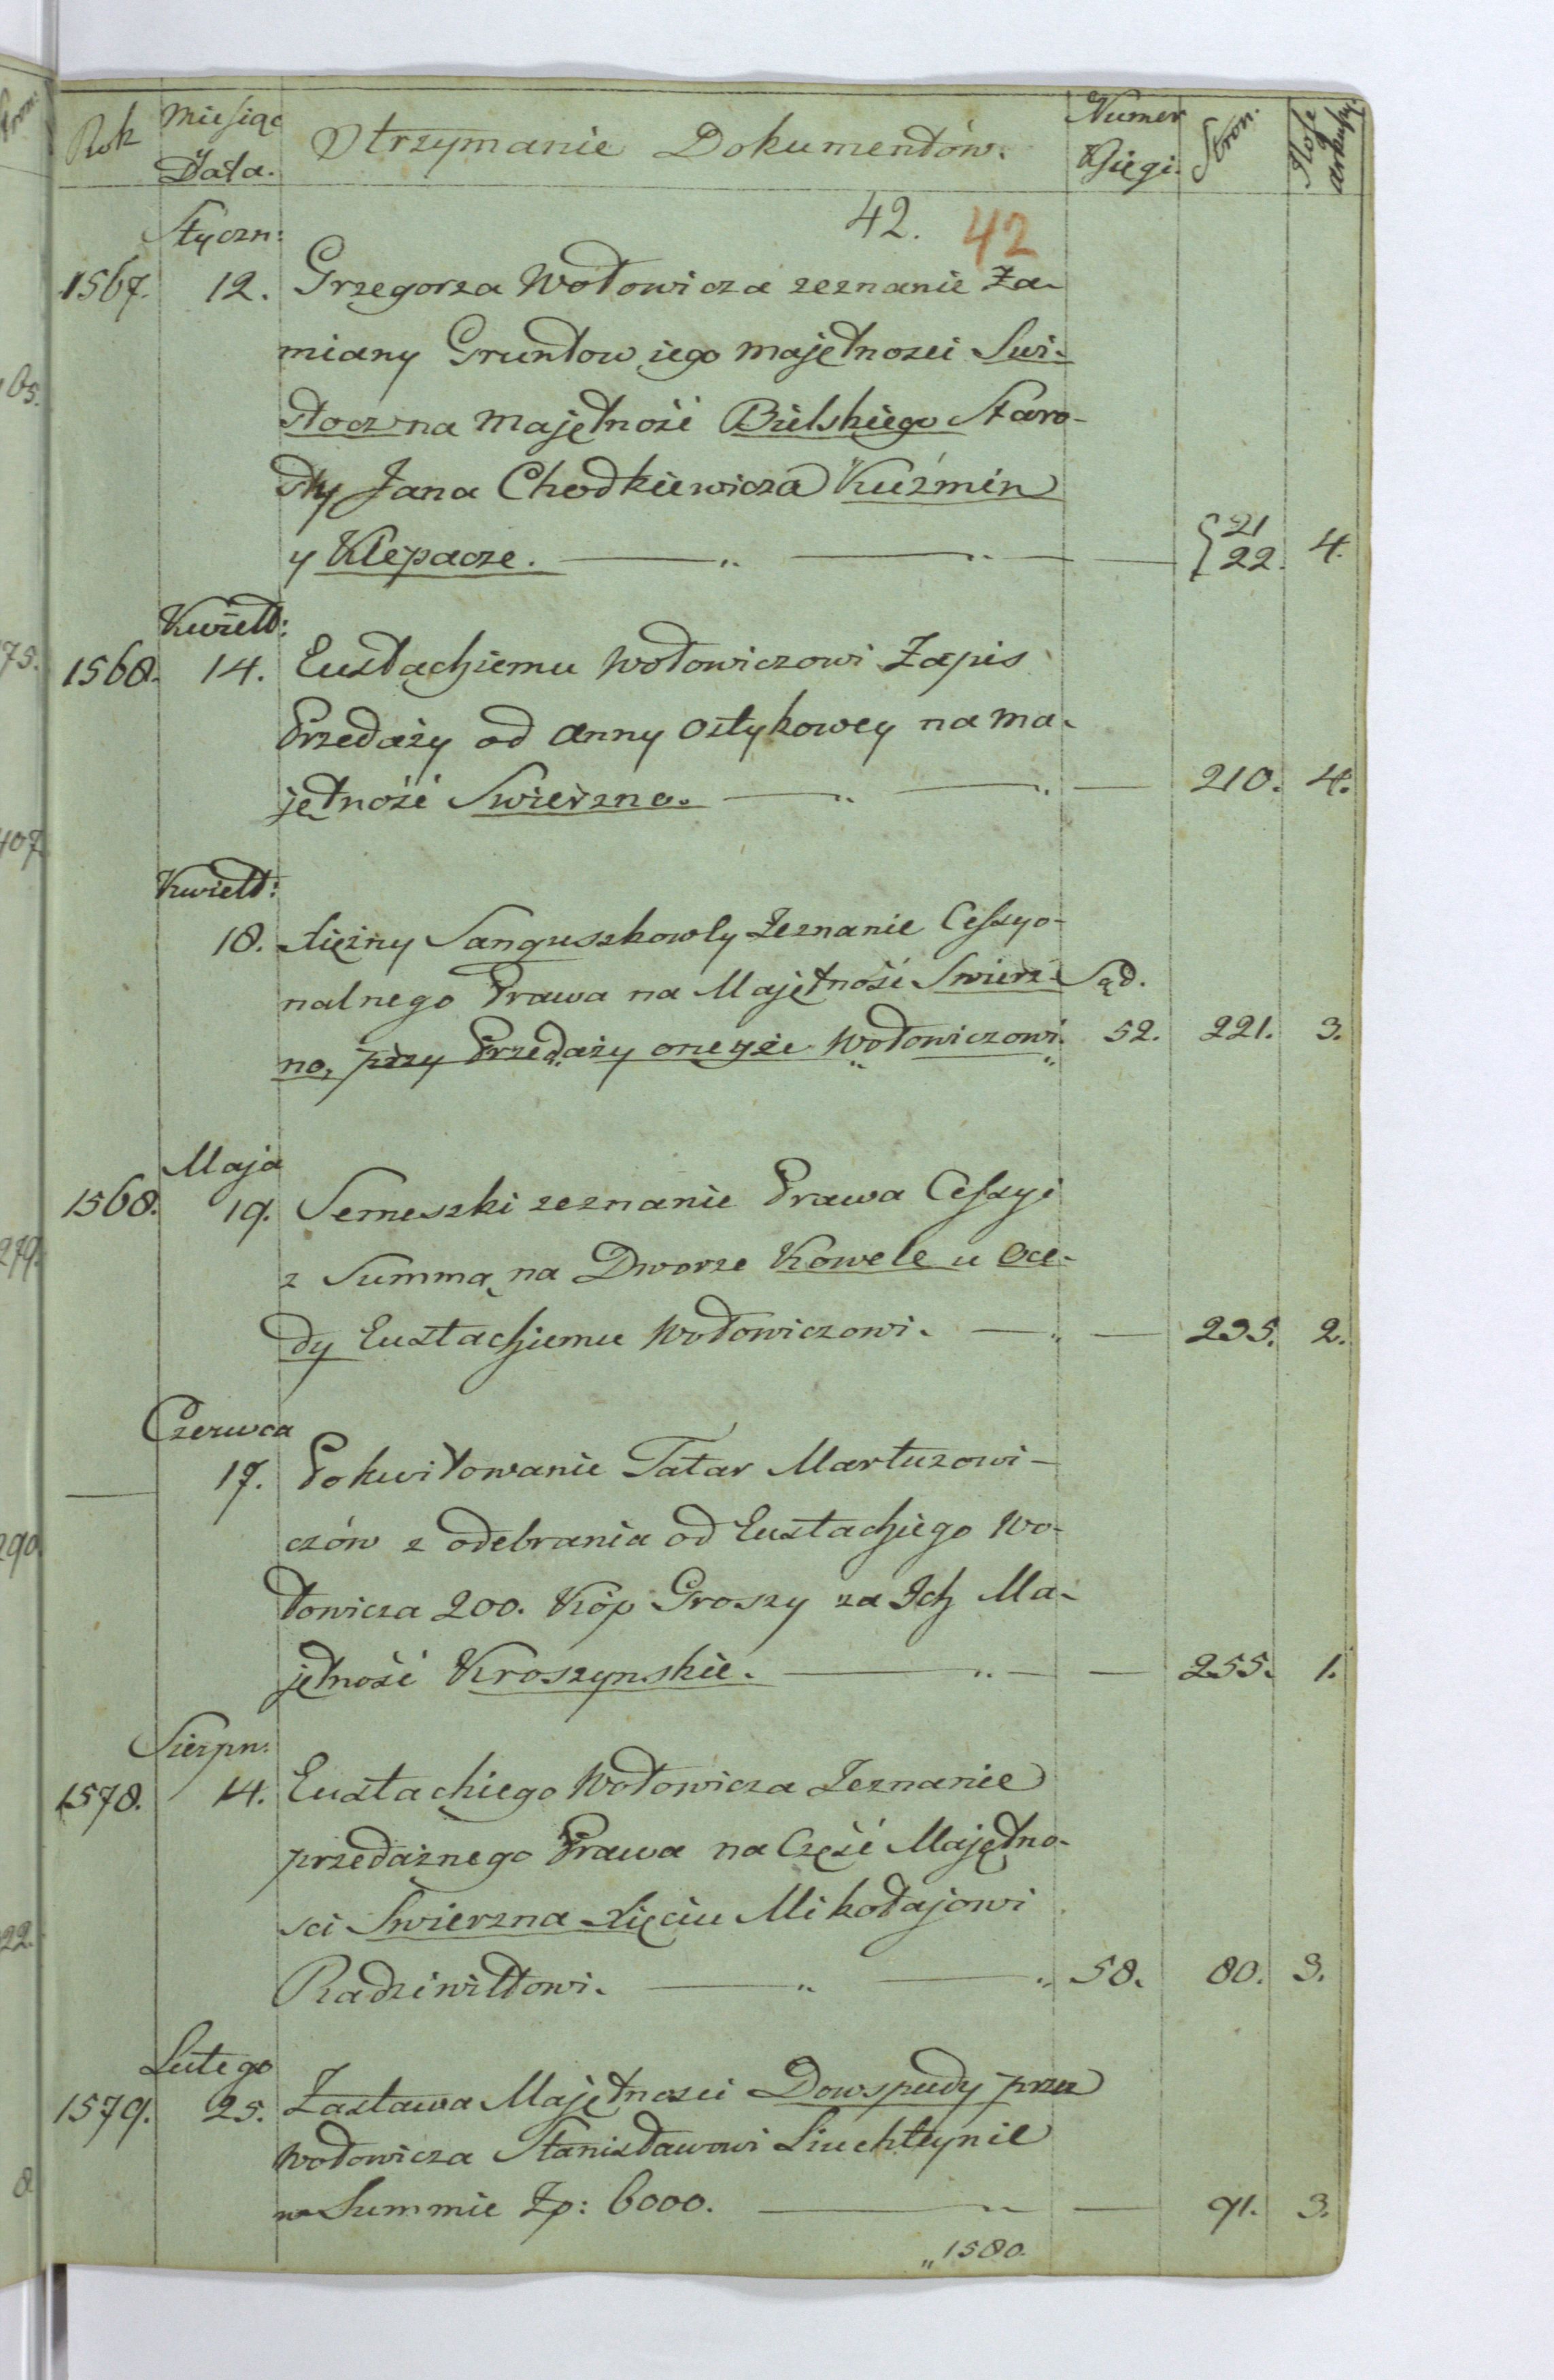 Rok Miesiąc Data. Otrzymanie Dokumentów. Numer Xsięgi. Stron. Ilość arkuszy.
42. 42
Styczn:
1567. 12. Grzegorza Wołowicza zeznanie Za-
miany Gruntow iego majętnosci Swi-
słocz na Majętność Bielskiego Staro-
sty Jana Chodkiewicza Kuźmin
y Klepacze. 21 22. 4.
Kwiett:
1568. 14. Eustachiemu Wołowiczowi Zapis
Przedaży od Anny Ostykowey na Ma-
jętność Swierzno. 210. 4.
Kwiett:
18. Xiężny Sanguszkowey Zeznanie Cessyo-
nalnego Prawa na Majętność Swierz- Sąd.
no, przy Przedaży oneyże Wołowiczowi. 52. 221. 3.
Maja
1568. 19. Semeszki zeznanie Prawa Cessyi
z Summą na Dworze Kowele u Oce-
dy Eustachiemu Wołowiczowi. 235. 2.
Czerwca
17. Pokwitowanie Tatar Martuzowi-
czów z odebrania od Eustachiego Wo-
łowicza 200. Kóp Groszy za Ich Ma-
jętność Kroszynskie. 255. 1.
Sierpn:
1578. 14. Eustachiego Wołowicza Zeznanie
przedażnego Prawa na Część Majętno-
sci Swierzna Xięciu Mikołajowi
Radziwiłłowi. 58. 80. 3.
Lutego
1579. 25. Zastawa Majętnosci Dowspudy przez
Wołowicza Stanisławowi Liuchteynie
w Summie Zp: 6000. 91. 3.
„1580.